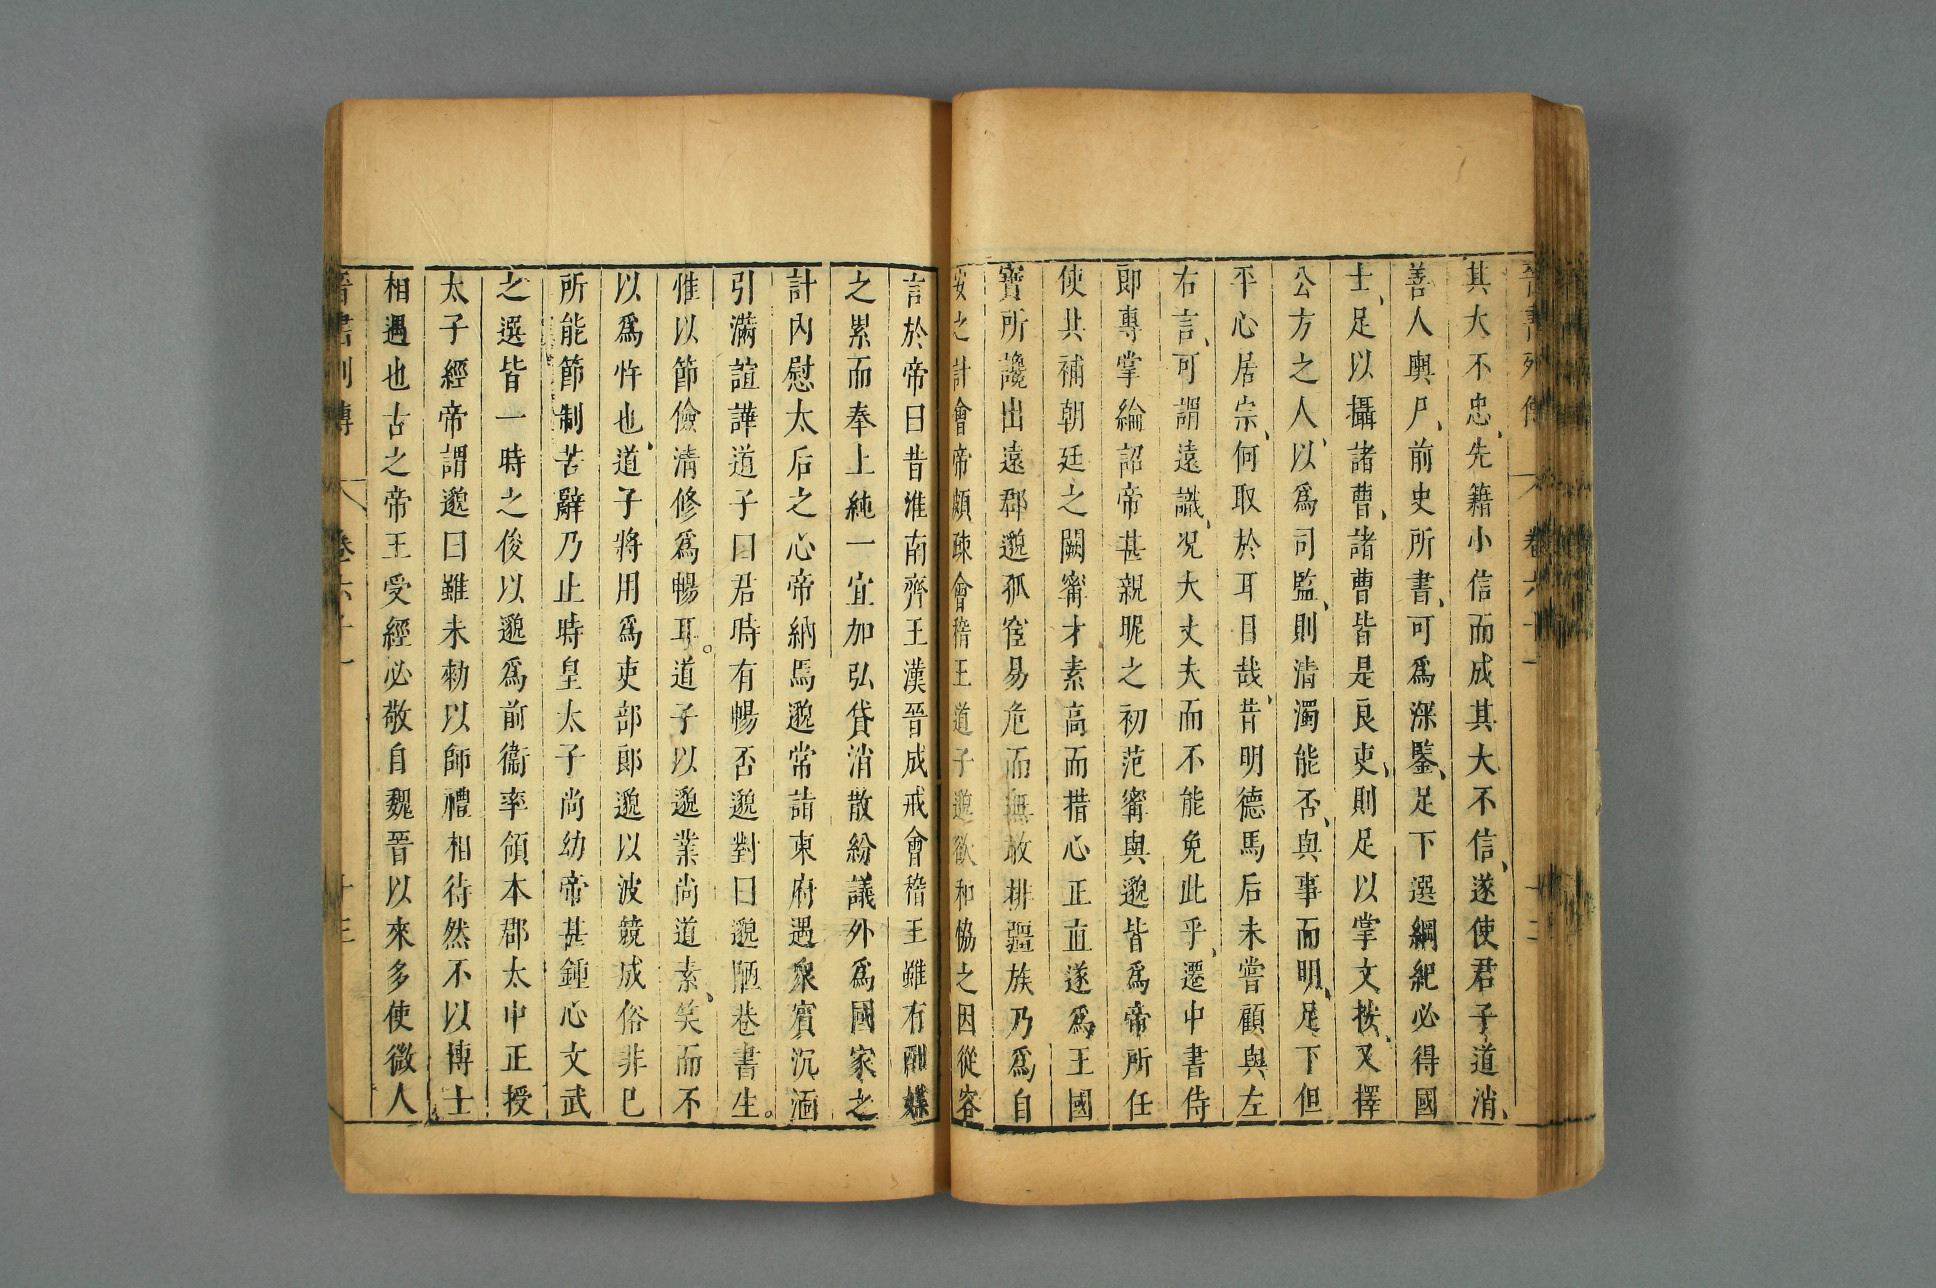 晉書列傳 卷六十一 十二
其大不忠先籍小信而成其大不信遂使君子道消
善人輿尸前史所書可爲深鑒足下選綱紀必得國
士足以攝諸曹諸曹皆是良吏則足以掌文按又擇
公方之人以爲司監則清濁能否與事而明足下但
平心居宗何取於耳目哉昔明德馬后未嘗顧與左
右言可謂遠識况大丈夫而不能免此乎遷中書侍
即專掌綸詔帝甚親昵之初范甯與邈皆爲帝所任
使共補朝廷之闕甯才素高而措心正直遂爲王國
寶所讒出遠郡邈孤宦易危而無敢排疆族乃爲自
安之計會帝頗疎會稽王道子邈欲和恊之因從容
言於帝曰昔淮南齊王漢晉成戒會稽王雖有酣媟
之累而奉上純一宜加弘貸消散紛議外爲國家之
計內慰太后之心帝納焉邈常詣東府遇衆賓沉湎
引滿諠譁道子曰君時有暢否邈對曰邈陋巷書生
惟以節儉清修爲暢耳道子以邈業尚道素笑而不
以爲忤也道子將用爲吏部郎邈以波競成俗非巳
所能節制苦辭乃止時皇太子尚幼帝甚鍾心文武
之選皆一時之俊以邈爲前衞率領本郡太中正授
太子經帝謂邈曰雖未勑以師禮相待然不以博士
相遇也古之帝王受經必敬自魏晉以來多使微人
晉書列傳 卷六十一 十三